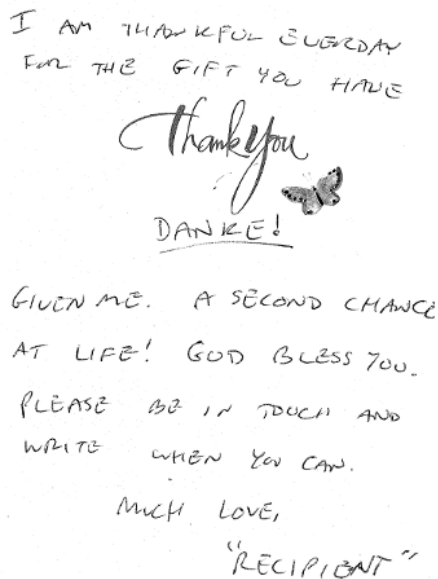 I AM THANKFUL EVERDAY
FOR THE GIFT YOU HAVE
Thank you
DANKE!
GIVEN ME. A SECOND CHANCE
AT LIFE! GOD BLESS YOU.
PLEASE BE IN TOUCH AND
WRITE WHEN YOU CAN.
MUCH LOVE,
"RECIPIENT"